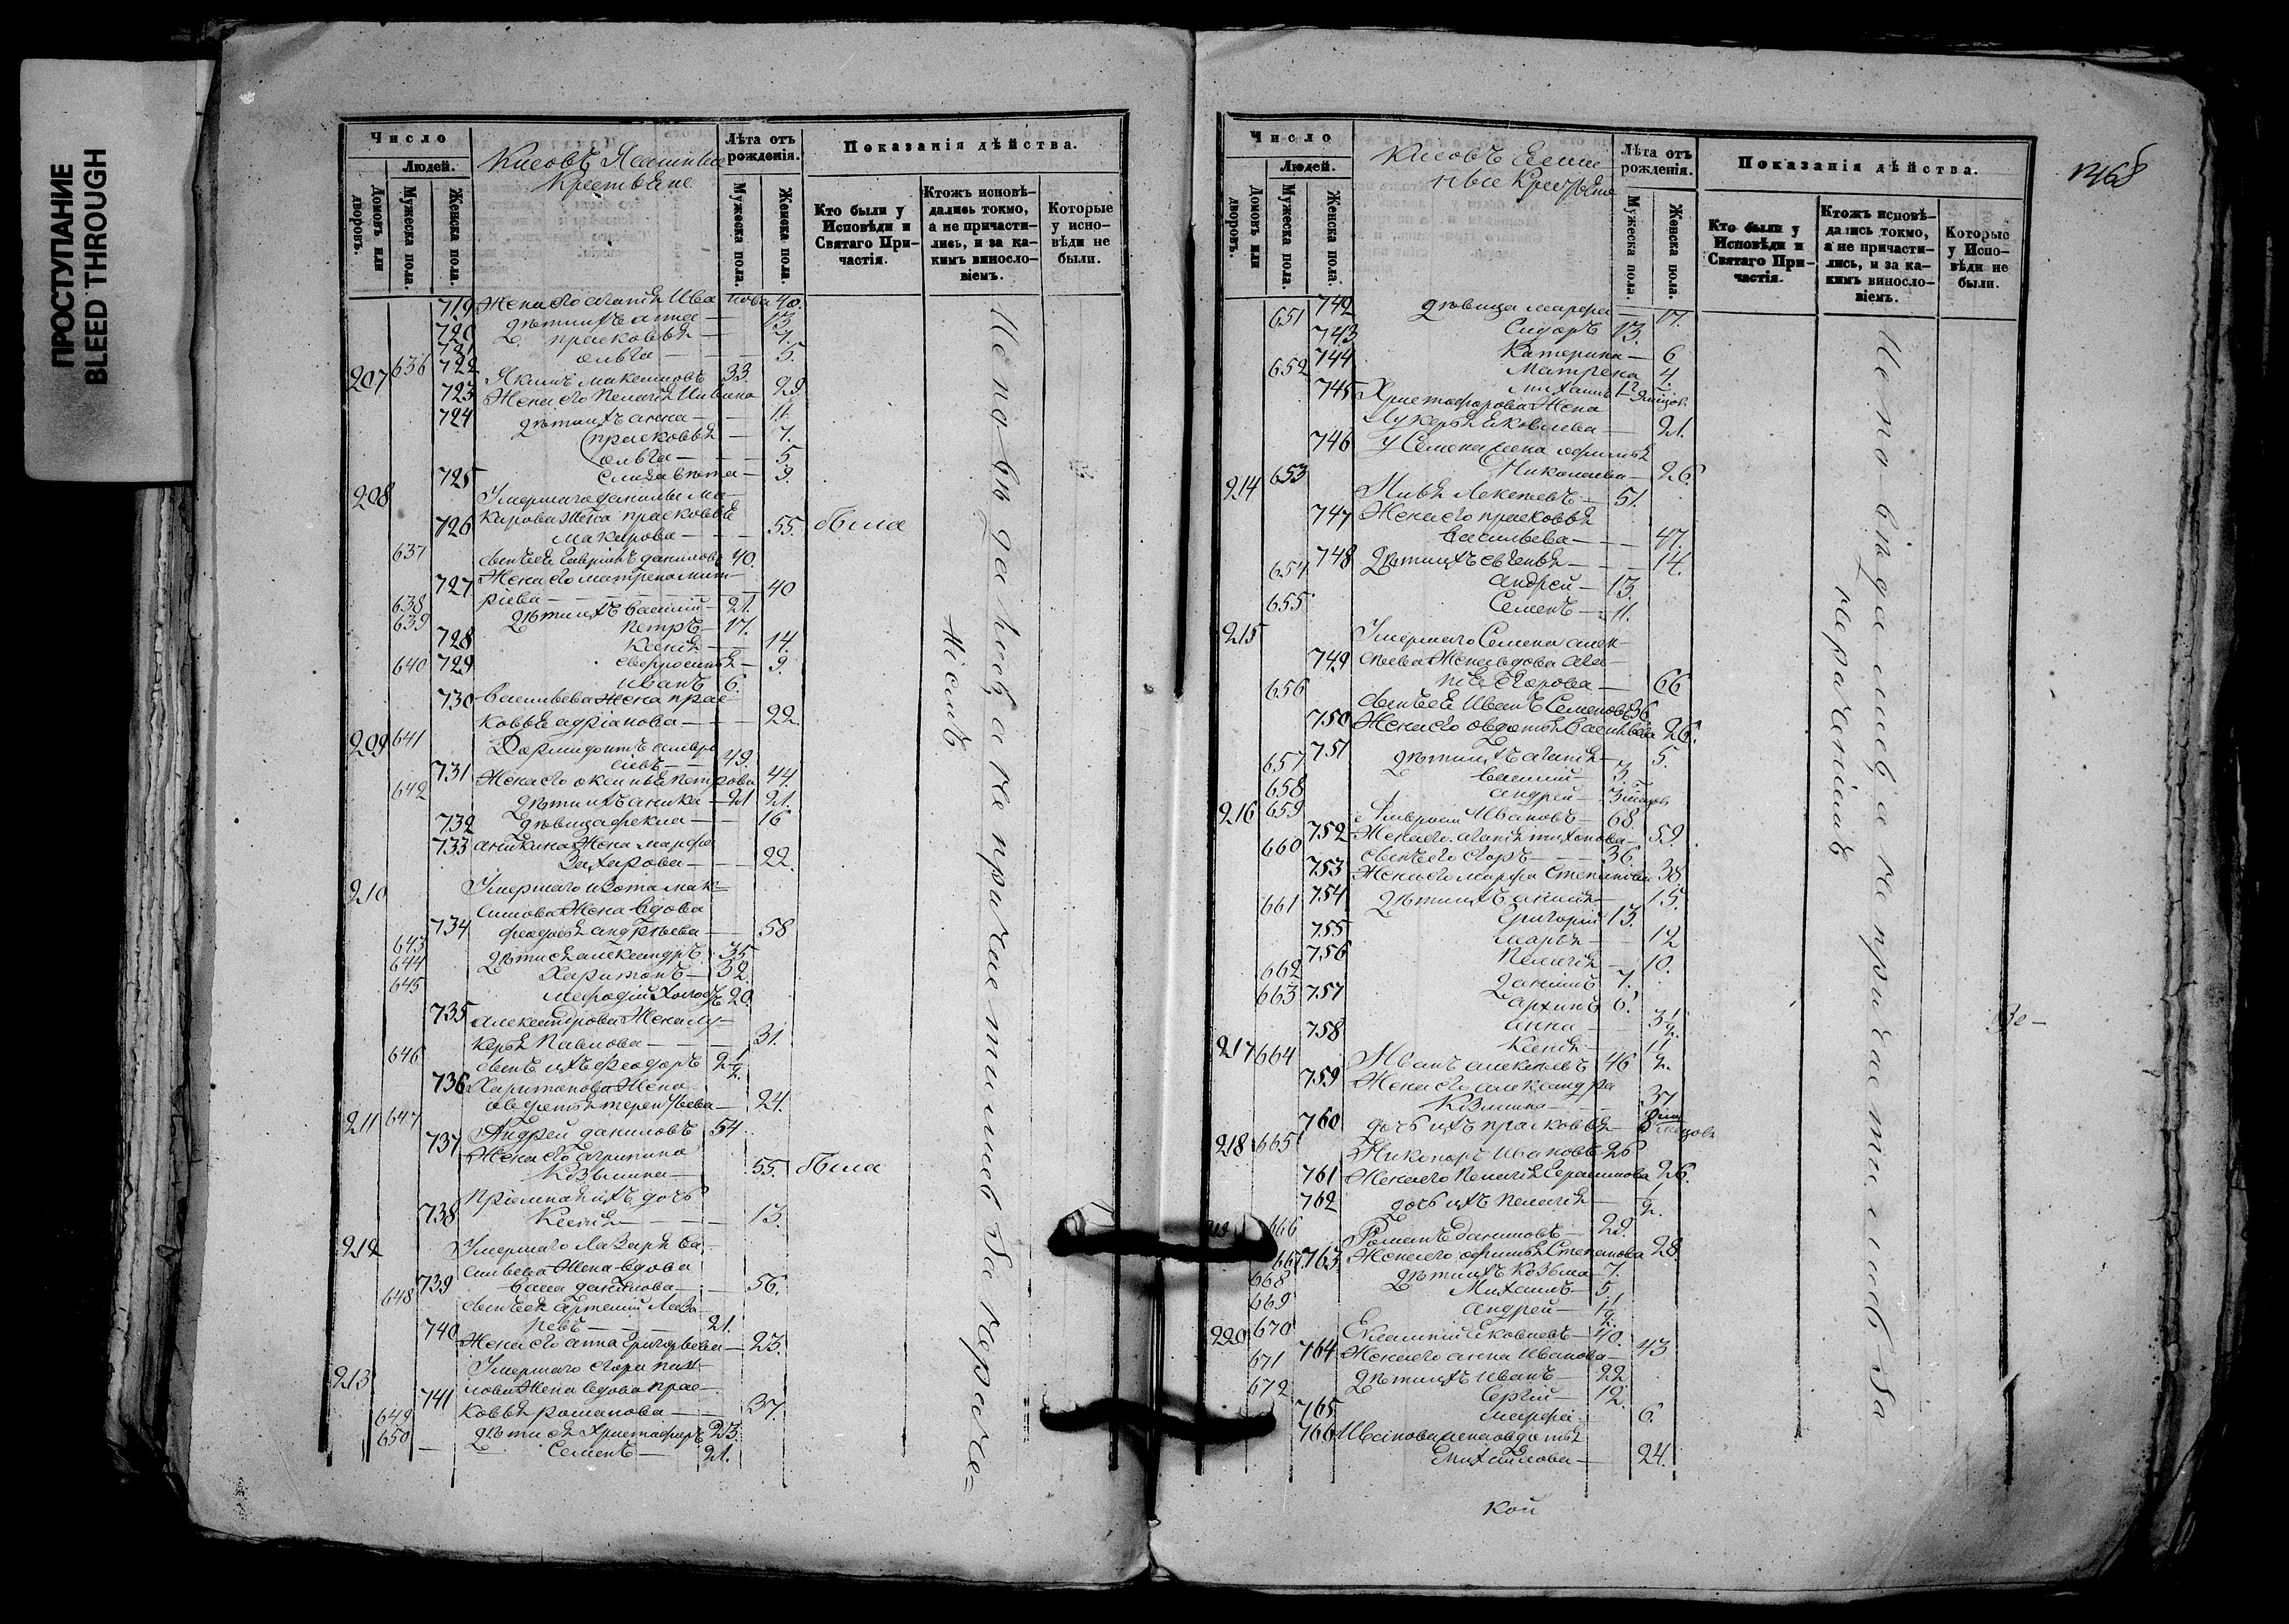 ПРОСТУПАНИЕ
BLEED THROUGH
Число
Людей.
Домовъ или дворовъ.
Мужеска пола.
Женска пола.
Крестьяне
Лѣта отъ рожденія.
Мужеска пола.
Женска пола.
Показанія дѣйства.
Кто были у Исповѣди и Святаго Причастія.
Ктожъ исповѣдались токмо, а не причастились, и за какимъ винословіемъ.
Которые у исповѣди не были.
719 Жена его Агапія Ива нова 40.
720 Дѣти ихъ Анна — 13.
721 Прасковья — 7.
722 Ольга — 5.
207 636 Якимъ Максимовъ 33.
723 Жена его Пелагія 29
724 Дѣти ихъ Анна — 11.
Прасковья — 7.
Ольга — 5
725 Елизавета — 3.
208 Умершаго Данилы Ма-
726 карова Жена Прасковья
Макарова — 55. была
637 Сынъ ея Гавріилъ Даниловъ 40.
727 Жена его Матрена Мит-
ріева — 40
638 Дѣти ихъ Василій — 21.
639 Петръ — 17.
728 Ксенія — 14.
729 Евфросинья — 9.
640 Иванъ 6.
730 Васильева Жена Прас-
ковья Адріанова — 22.
209 641 Дормидонтъ Амвро
сіевъ — 49.
731 Жена его Аксинья Петрова 44.
642 Дѣти ихъ Аника — 21 21.
732 Дѣвица Фекла — 16
733 Аникина Жена Марфа
Захарова — 22.
210 Умершаго Изота Мак-
симова Жена вдова
734 Феодосья Андрѣева — 58
643 Дѣти ея Александръ 35
644 Харитонъ — 32.
645 Мефодій Холостъ 20.
735 Александрова Жена Лу-
керья Павлова — 31.
646 Сынъ ихъ Феодоръ 2 1/2.
736 Харитонова Жена
Авдотья Терентьева — 24.
211 647 Андрей Даниловъ 54
737 Жена его Агрипина
Козьмина — 55. была
Пріемная ихъ дочь
738 Ксенія — 13.
212 Умершаго Лазаря Ва-
сильева Жена вдова
739 Васса Данилова — 56.
648 Сынъ ея Артемій Лаза-
ревъ — 21.
740 Жена его Анна Григорьева — 23.
213 Умершаго Егора Пав-
лова Жена вдова Прас-
741 ковья Романова — 37.
649 Дѣти ея Христофоръ 23
650 Семенъ — 21.
Исповѣдались, а не причастились за нераче-
ніемъ
Число
Людей.
Домовъ или дворовъ.
Мужеска пола.
Женска пола.
Лѣта отъ рожденія.
Мужеска пола.
Женска пола.
Показанія дѣйства.
Кто были у Исповѣди и Святаго Причастія.
Ктожъ исповѣдались токмо, а не причастились, и за какимъ винословіемъ.
Которые у Исповѣди не были.
742 Дѣвица Марфа — 17.
651 Сидоръ 13.
743 Катерина — 6
744 Матрена 4.
652 Михаилъ
745 Христофорова Жена
Лукерья Яковлева — 21.
746 У Семена жена Офимья
Николаева — 26.
214 653 Илья Алексѣевъ — 51.
747 Жена его Прасковья
Васильева — 47.
748 Дѣти ихъ Евгенья — 14.
654 Андрей — 13.
655 Семенъ — 11.
215 Умершаго Семена Алек-
749 сѣева Жена вдова Ага-
пія Егорова — 66
656 Сынъ ея Иванъ Семеновъ 36
750 Жена его Овдотья Васильева 26.
751 Дѣти ихъ Агапія — 5.
657 Василий — 3
658 Андрей —
216 659 Амвросій Ивановъ — 68.
752 Жена его Агапія Тихонова — 59.
660 Сынъ его Егоръ — 36.
753 Жена его Марфа Степанова 38
754 Дѣти ихъ — 15.
661 Григорій 13.
755 Марья — 12
756 Пелагія — 10.
662 Даніилъ 7.
663 Архипъ 6.
757 Анна — 3 1/2.
758 Ксенія — 1 1/2.
217 664 Иванъ Алексѣевъ 46
759 Жена его Александра
Козмина — 37
760 Дочь ихъ Прасковья —
218 665 Никоноръ Ивановъ 26
761 Жена его Пелагія Герасимова 26.
762 Дочь ихъ Пелагія — 1/2.
666 Романъ Даниловъ — 29.
763 Жена его Офимья Степанова 28
667 Дѣти ихъ Козьма — 7.
668 Михаилъ — 5
669 Андрей — 1 1/2.
220 670 Яковлевъ — 40.
764 Жена его Анна Иванова — 43
671 Дѣти ихъ Иванъ — 22
672 Сергій — 12.
765 Марфа — 6.
766 Иванова жена Овдотья
Михайлова — 24.
Исповѣдались, а не причастились за
нераченіемъ
кой